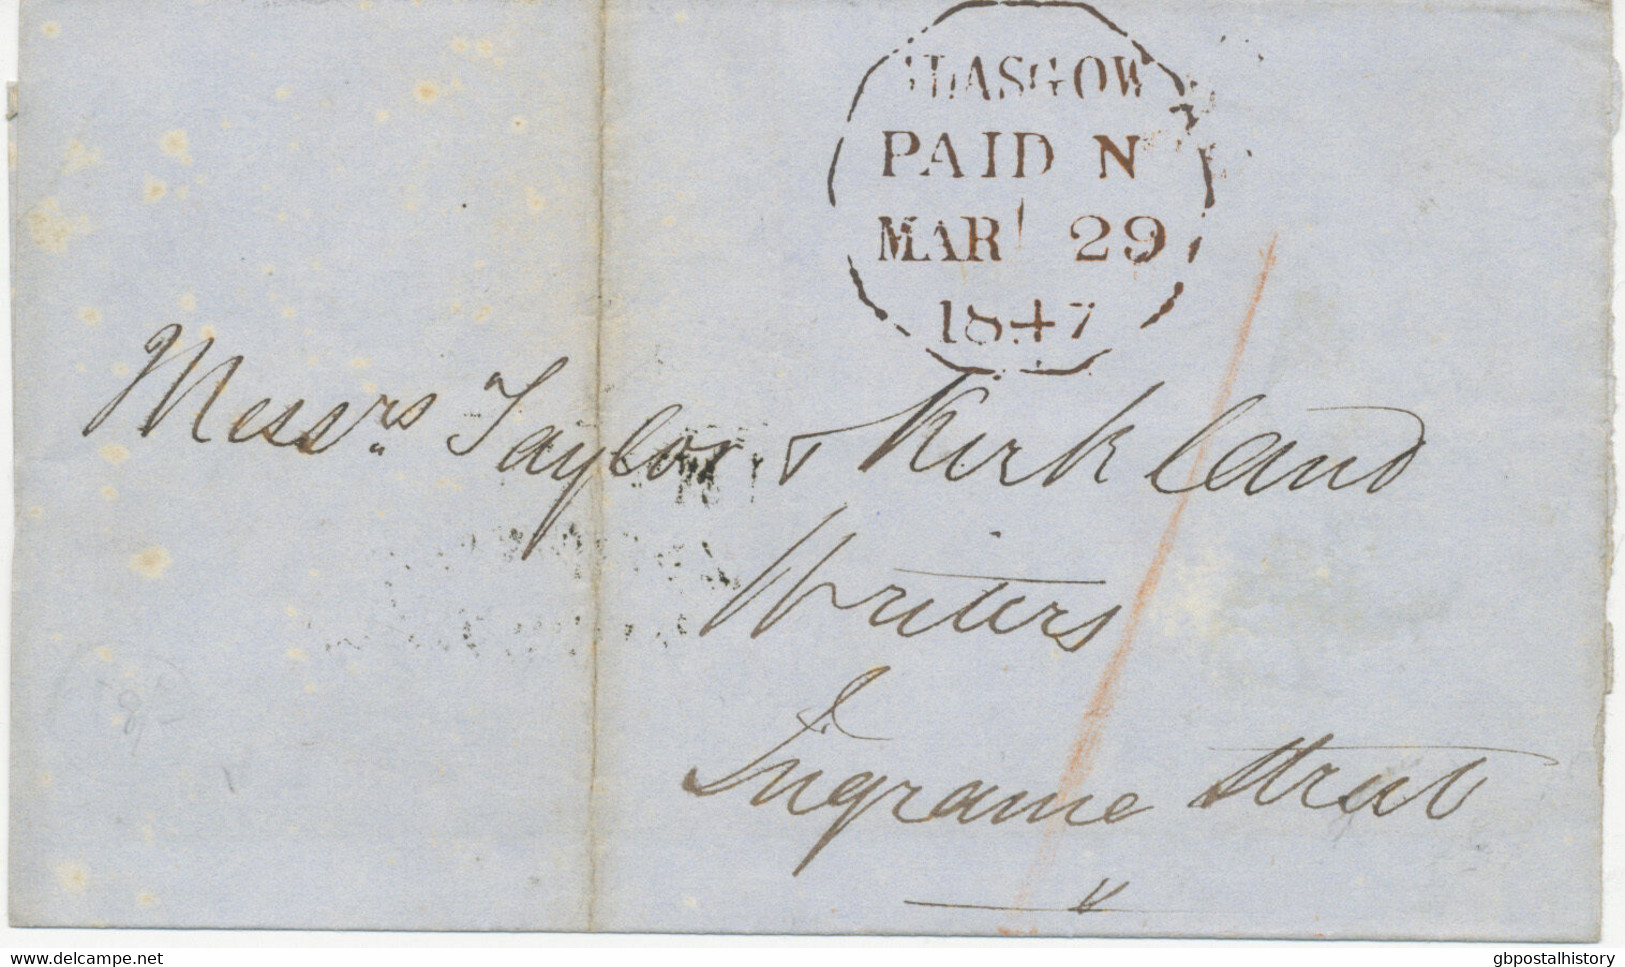 GLASGOW
PAID N
MAR 29
1847
Messrs Taylor & Kirkland
Writers
Ingrame Street
delcampe.net
gbpostalhistory